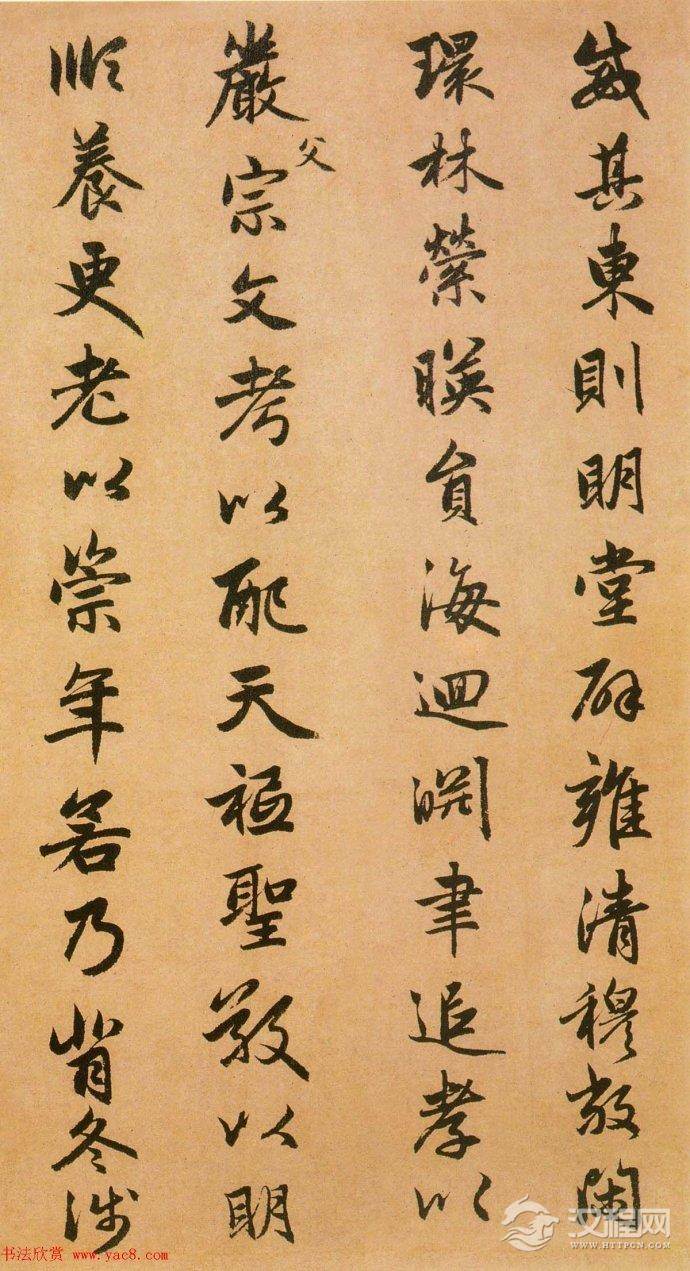 威其東則明堂辟雍清穆敞閑
環林縈暎員海迴淵聿追孝以
嚴父宗文考以配天祗聖敬以明
順養更老以崇年若乃背冬涉
书法欣赏 www.yac8.com
汉程网
WWW.HTTPCN.COM